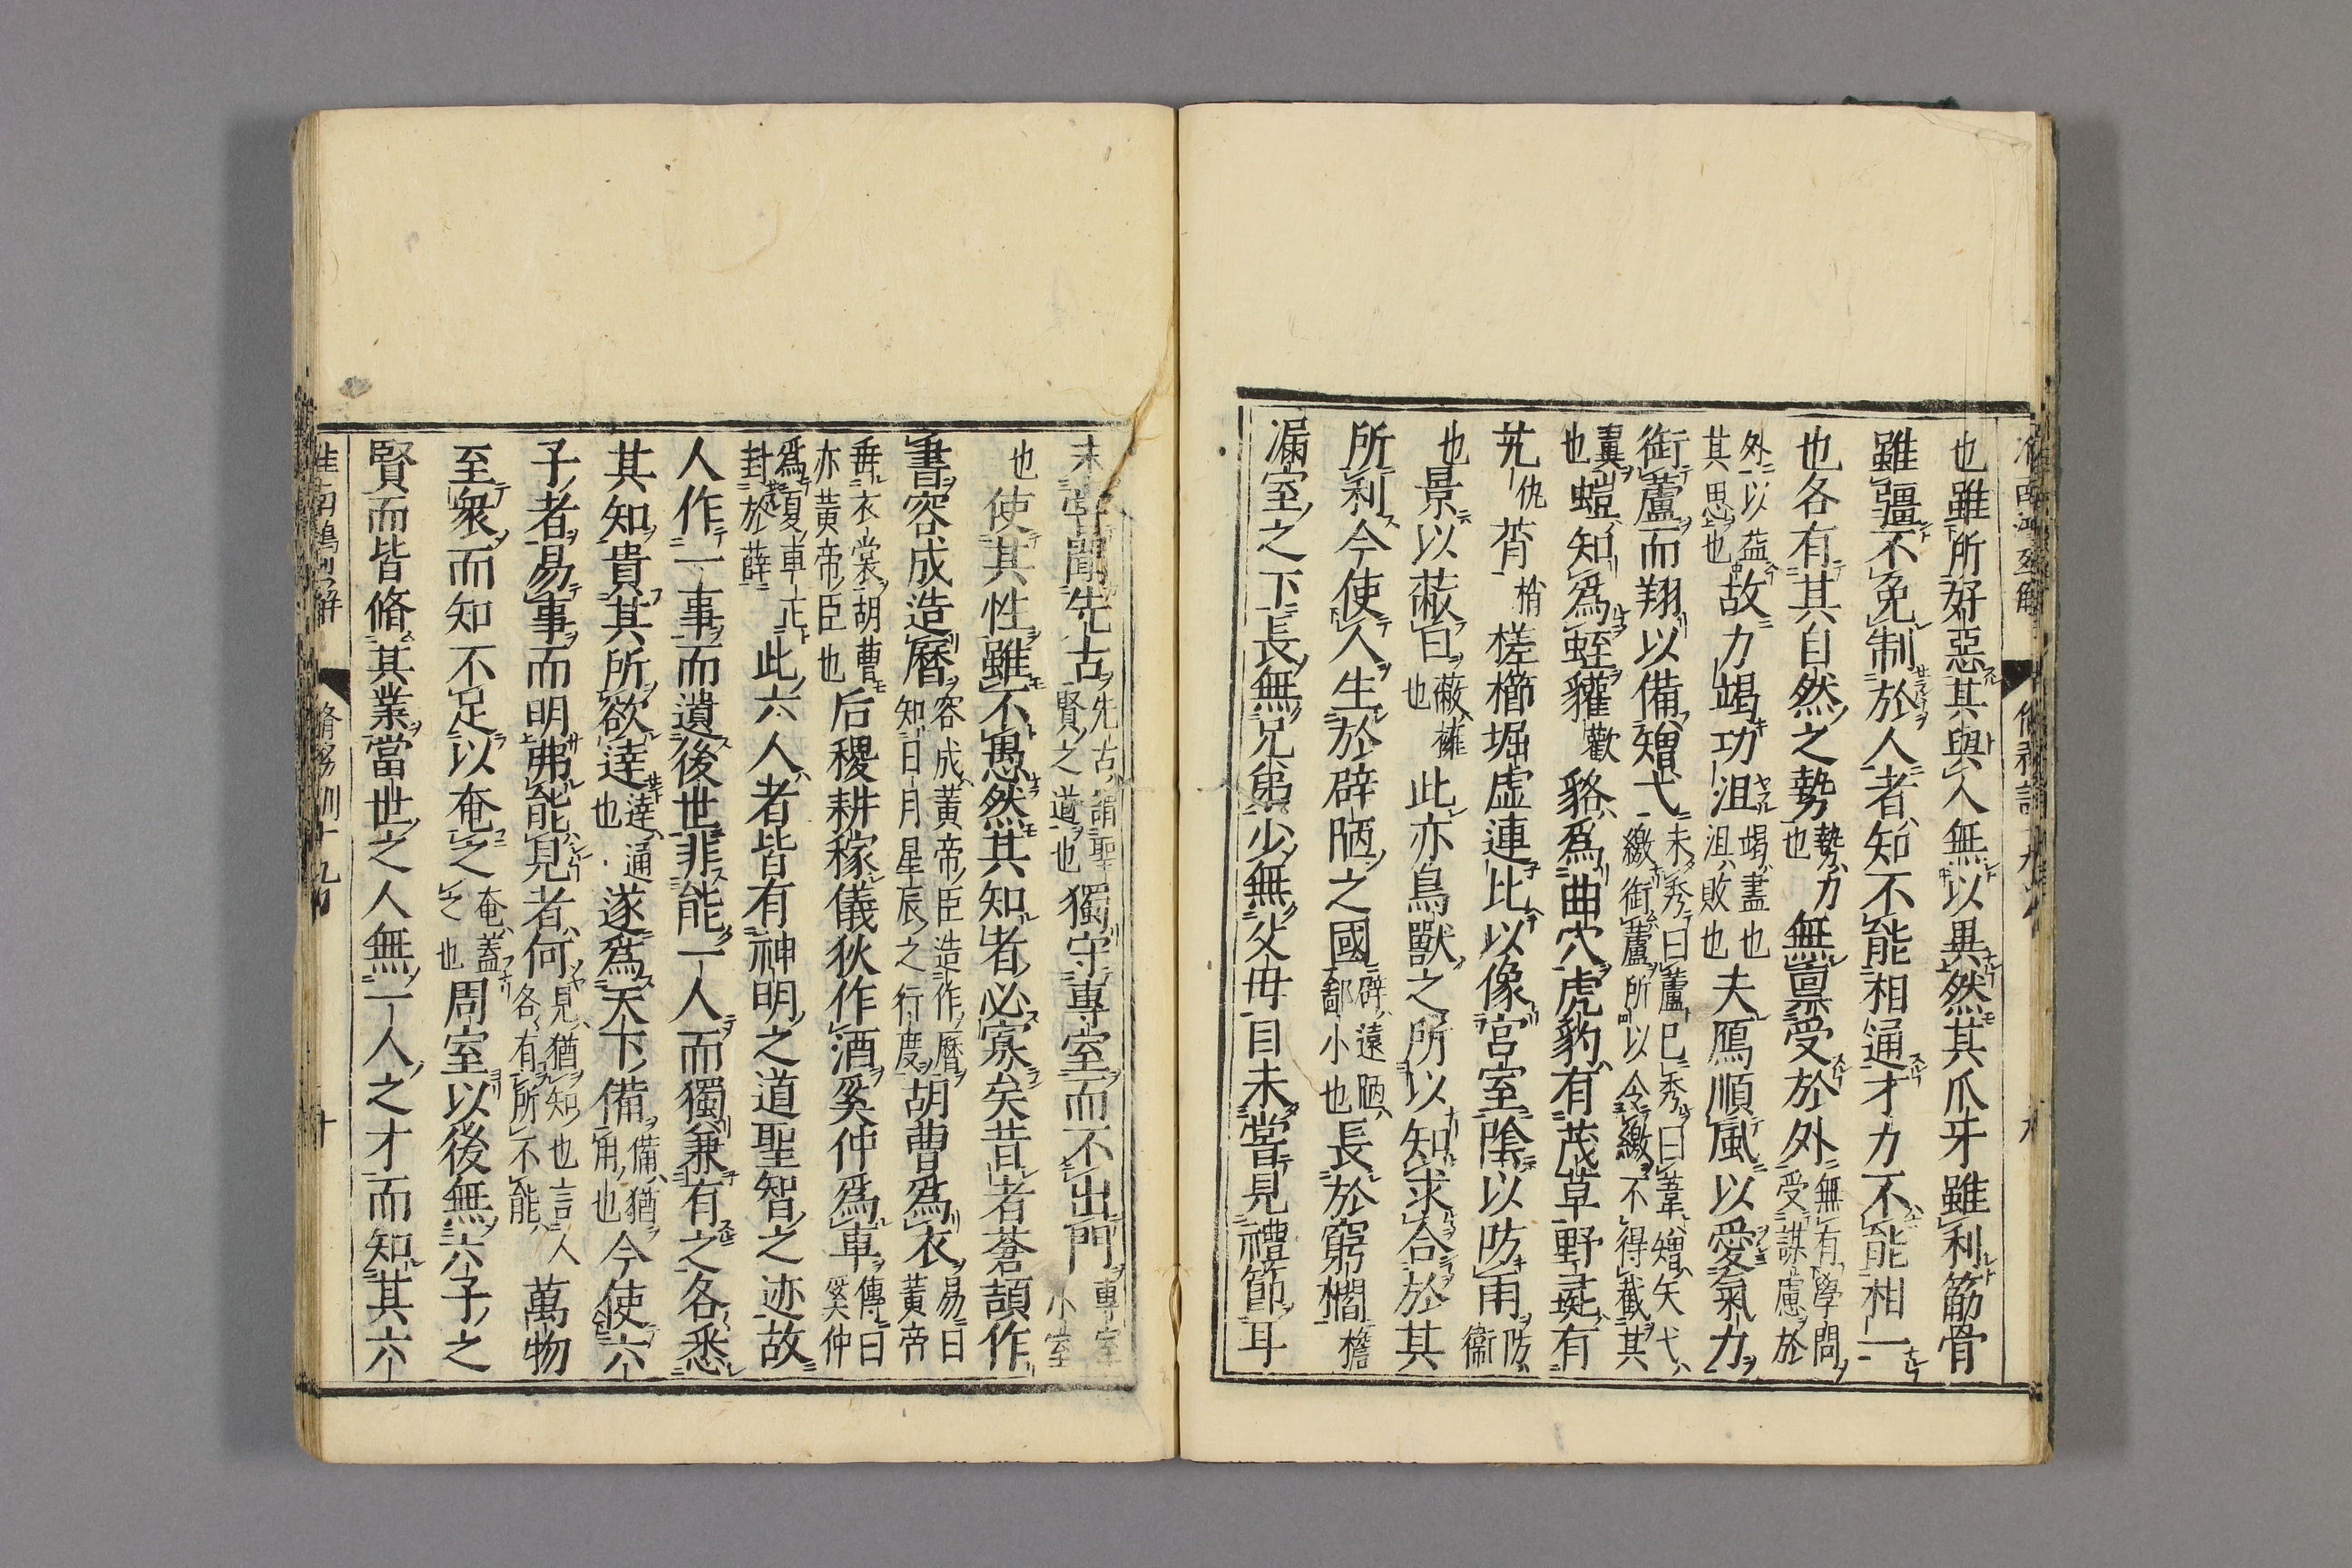 也雖所好惡其與人無以異然其爪牙雖利筋骨
雖彊不免制於人者知不能相通才力不能相一
也各有其自然之勢勢力也無稟受於外無有學問受謀慮於
外以益其思也故力竭功沮竭盡也沮敗也夫鴈順風以愛氣力
銜蘆而翔以備矰弋未秀曰蘆已秀曰葦矰矢弋繳銜蘆所以令繳不得截其
翼也螘知爲垤貛歡貉爲曲穴虎豹有茂草野彘有
艽仇莦梢槎櫛堀虛連比以像宮室陰以防雨防衞
也景以蔽日蔽擁也此亦鳥獸之所以知求合於其
所利今使人生於辟陋之國辟遠陋鄙小也長於窮櫩檐
漏室之下長無兄弟少無父母目未嘗見禮節耳
未嘗聞先古先古謂聖賢之道也獨守專室而不出門專室小室
也使其性雖不愚然其知者必寡矣昔者蒼頡作
書容成造曆容成黃帝臣造作曆知日月星辰之行度胡曹爲衣易曰黃帝
垂衣裳胡曹亦黃帝臣也后稷耕稼儀狄作酒奚仲爲車傳曰奚仲
爲夏車正封於薛此六人者皆有神明之道聖智之迹故
人作一事而遺後世非能一人而獨兼有之各悉
其知貴其所欲達達通也遂爲天下備備猶用也今使六
子者易事而明弗能見者何見猶知也言人各有所不能萬物
至衆而知不足以奄之奄蓋之也周室以後無六子之
賢而皆脩其業當世之人無一人之才而知其六
淮南鴻烈解 脩務訓十九 十